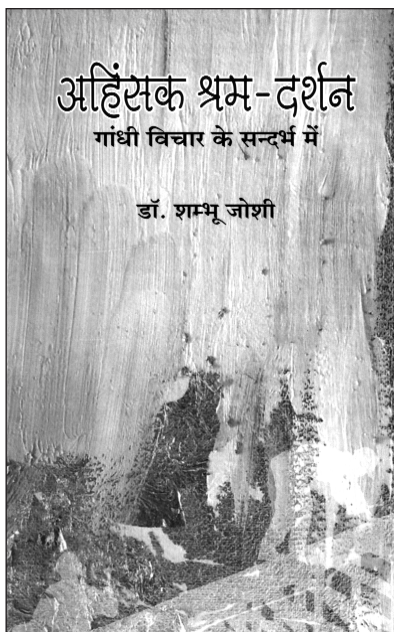 अहिंसक श्रम-दर्शन
गांधी विचार के सन्दर्भ में
डॉ. शम्भू जोशी